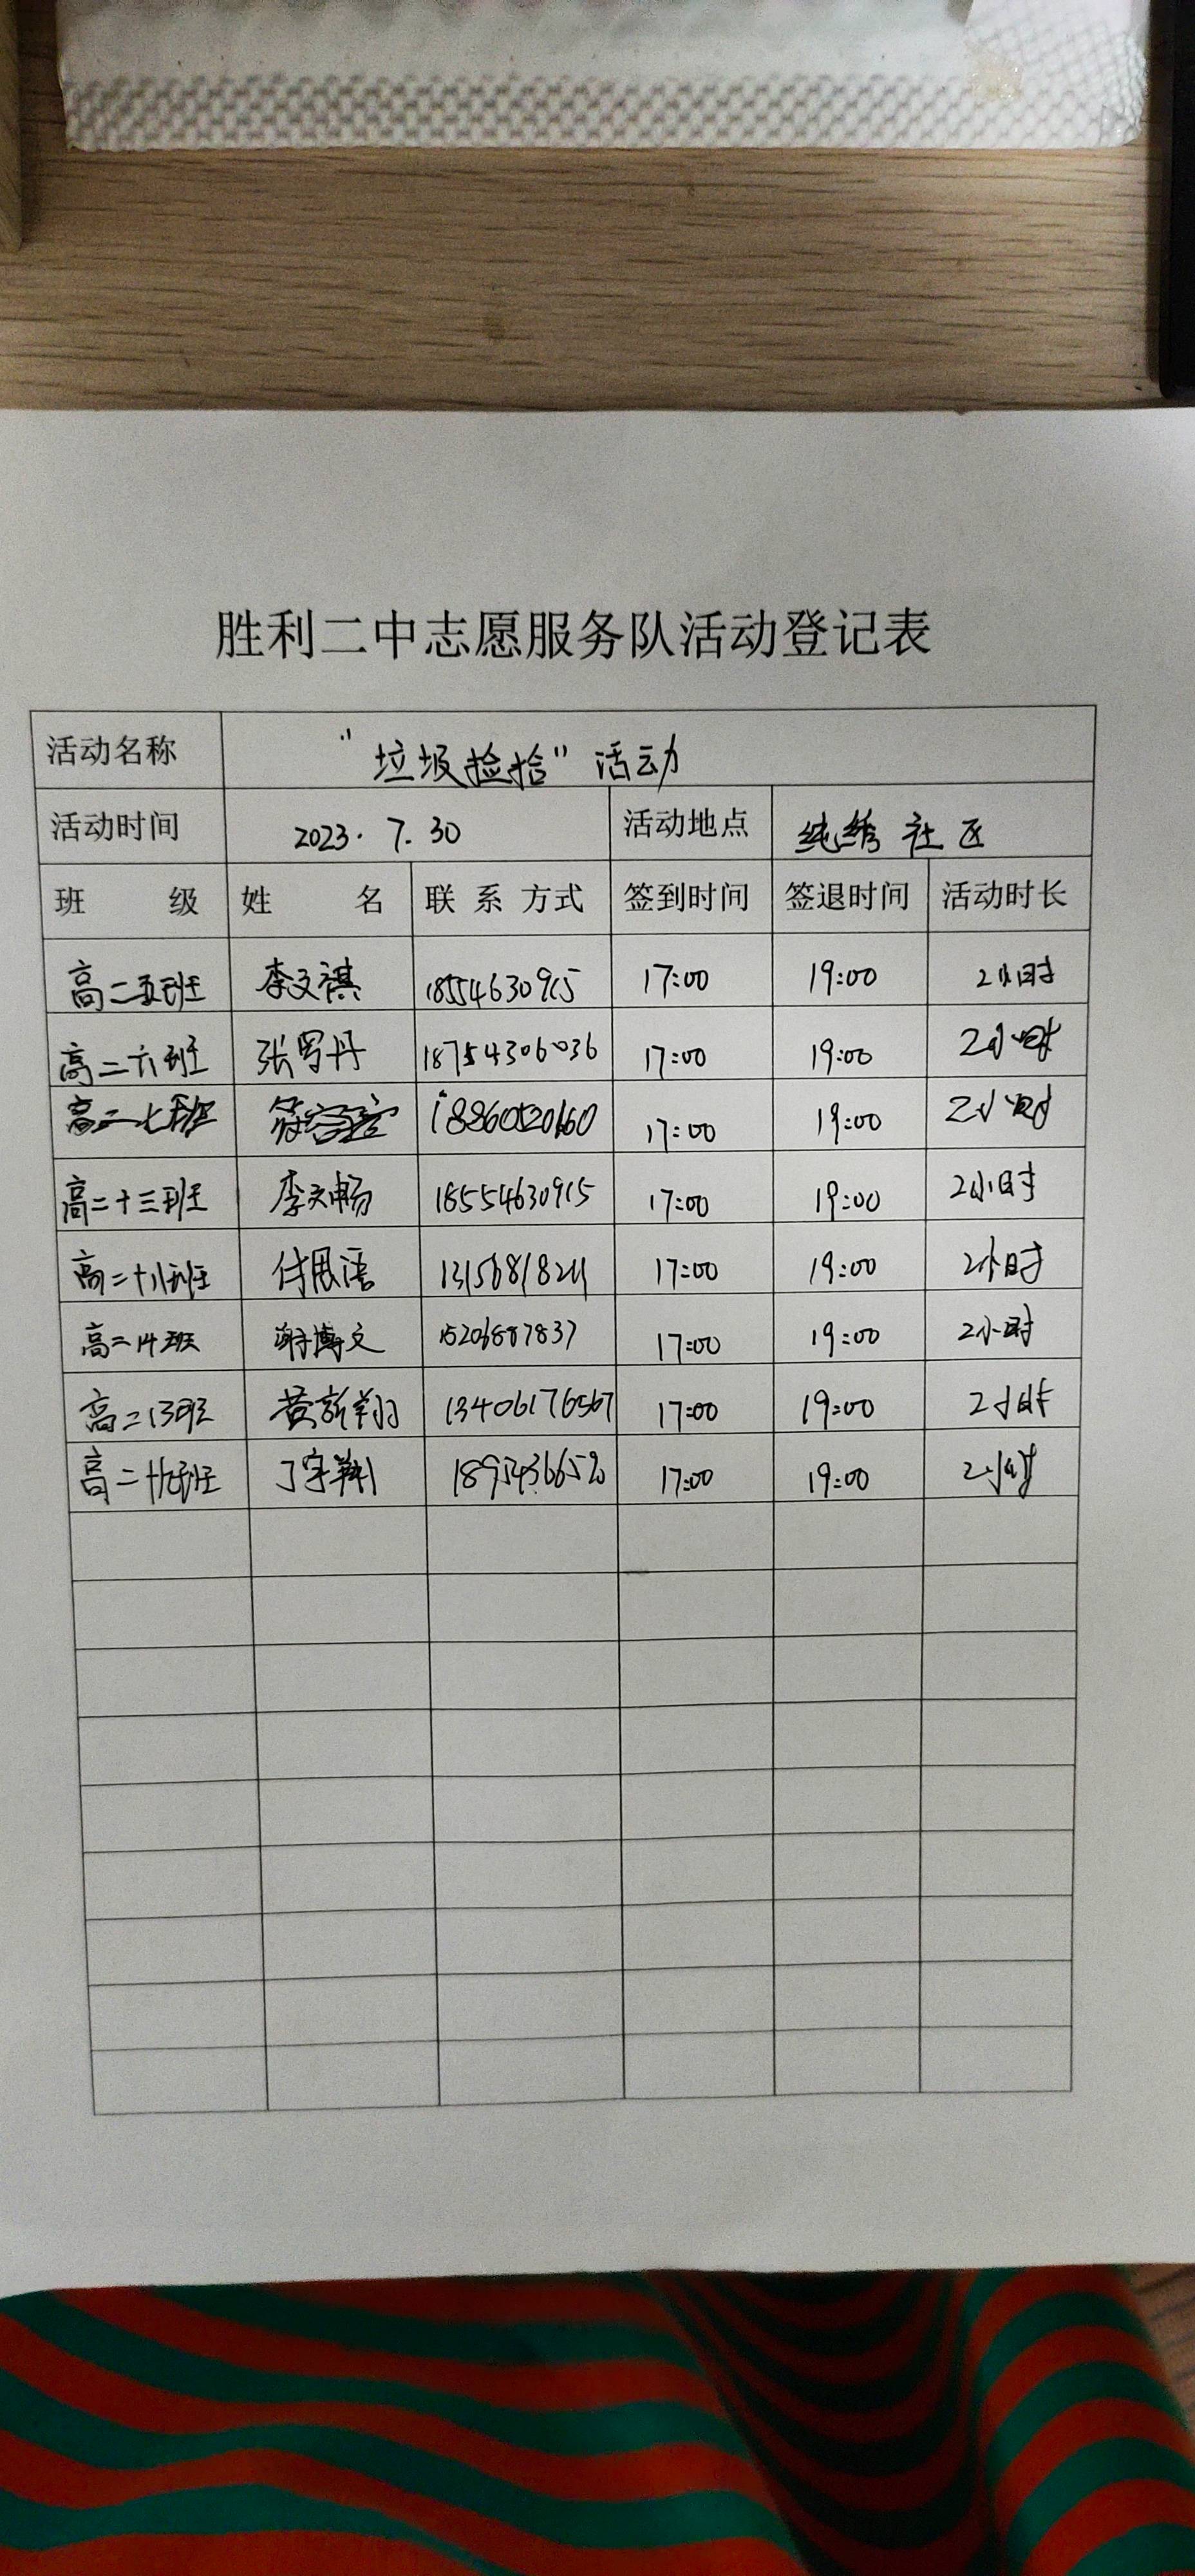 胜利二中志愿服务队活动登记表
活动名称 “垃圾捡拾”活动
活动时间 2023.7.30 活动地点 纯绣社区
班 级 姓 名 联 系 方式 签到时间 签退时间 活动时长
高二五班 李文祺 18554630915 17:00 19:00 2小时
高二六班 张 丹 18754306036 17:00 19:00 2小时
高二七班 18860520660 17:00 19:00 2小时
高二十三班 李天畅 18554630915 17:00 19:00 2小时
高二十八班 付思语 13156818211 17:00 19:00 2小时
高二14班 谢博文 15206887837 17:00 19:00 2小时
高二13班 黄新翔 13406176567 17:00 19:00 2小时
高二十九班 丁宇翔 18954366520 17:00 19:00 2小时